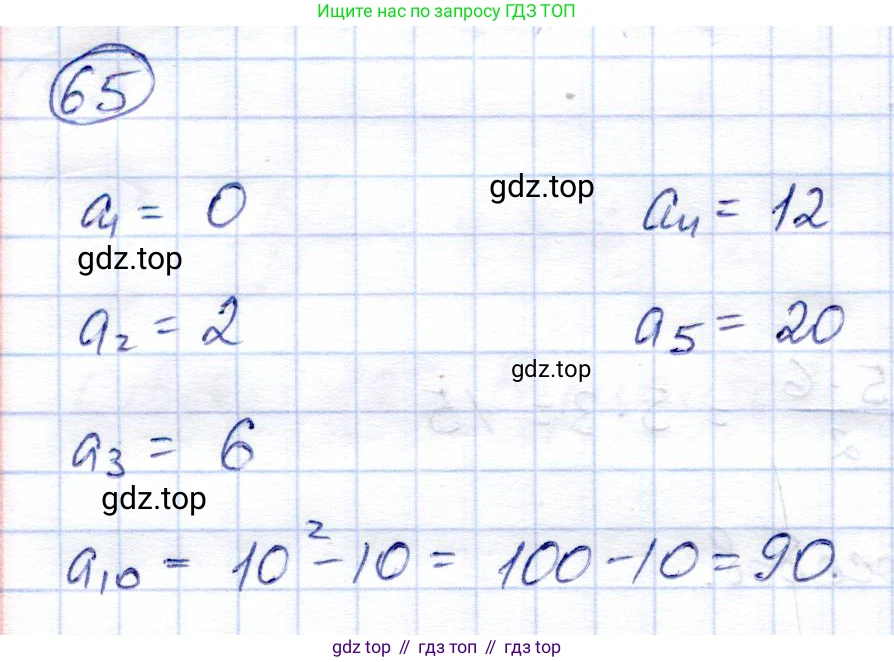 Ищите нас по запросу ГДЗ ТОП
65
a₁ = 0
gdz.top
a₄ = 12
gdz.top
a₂ = 2
a₅ = 20
gdz.top
a₃ = 6
gdz.top
a₁₀ = 10² - 10 = 100 - 10 = 90.
gdz top // гдз топ // gdz top